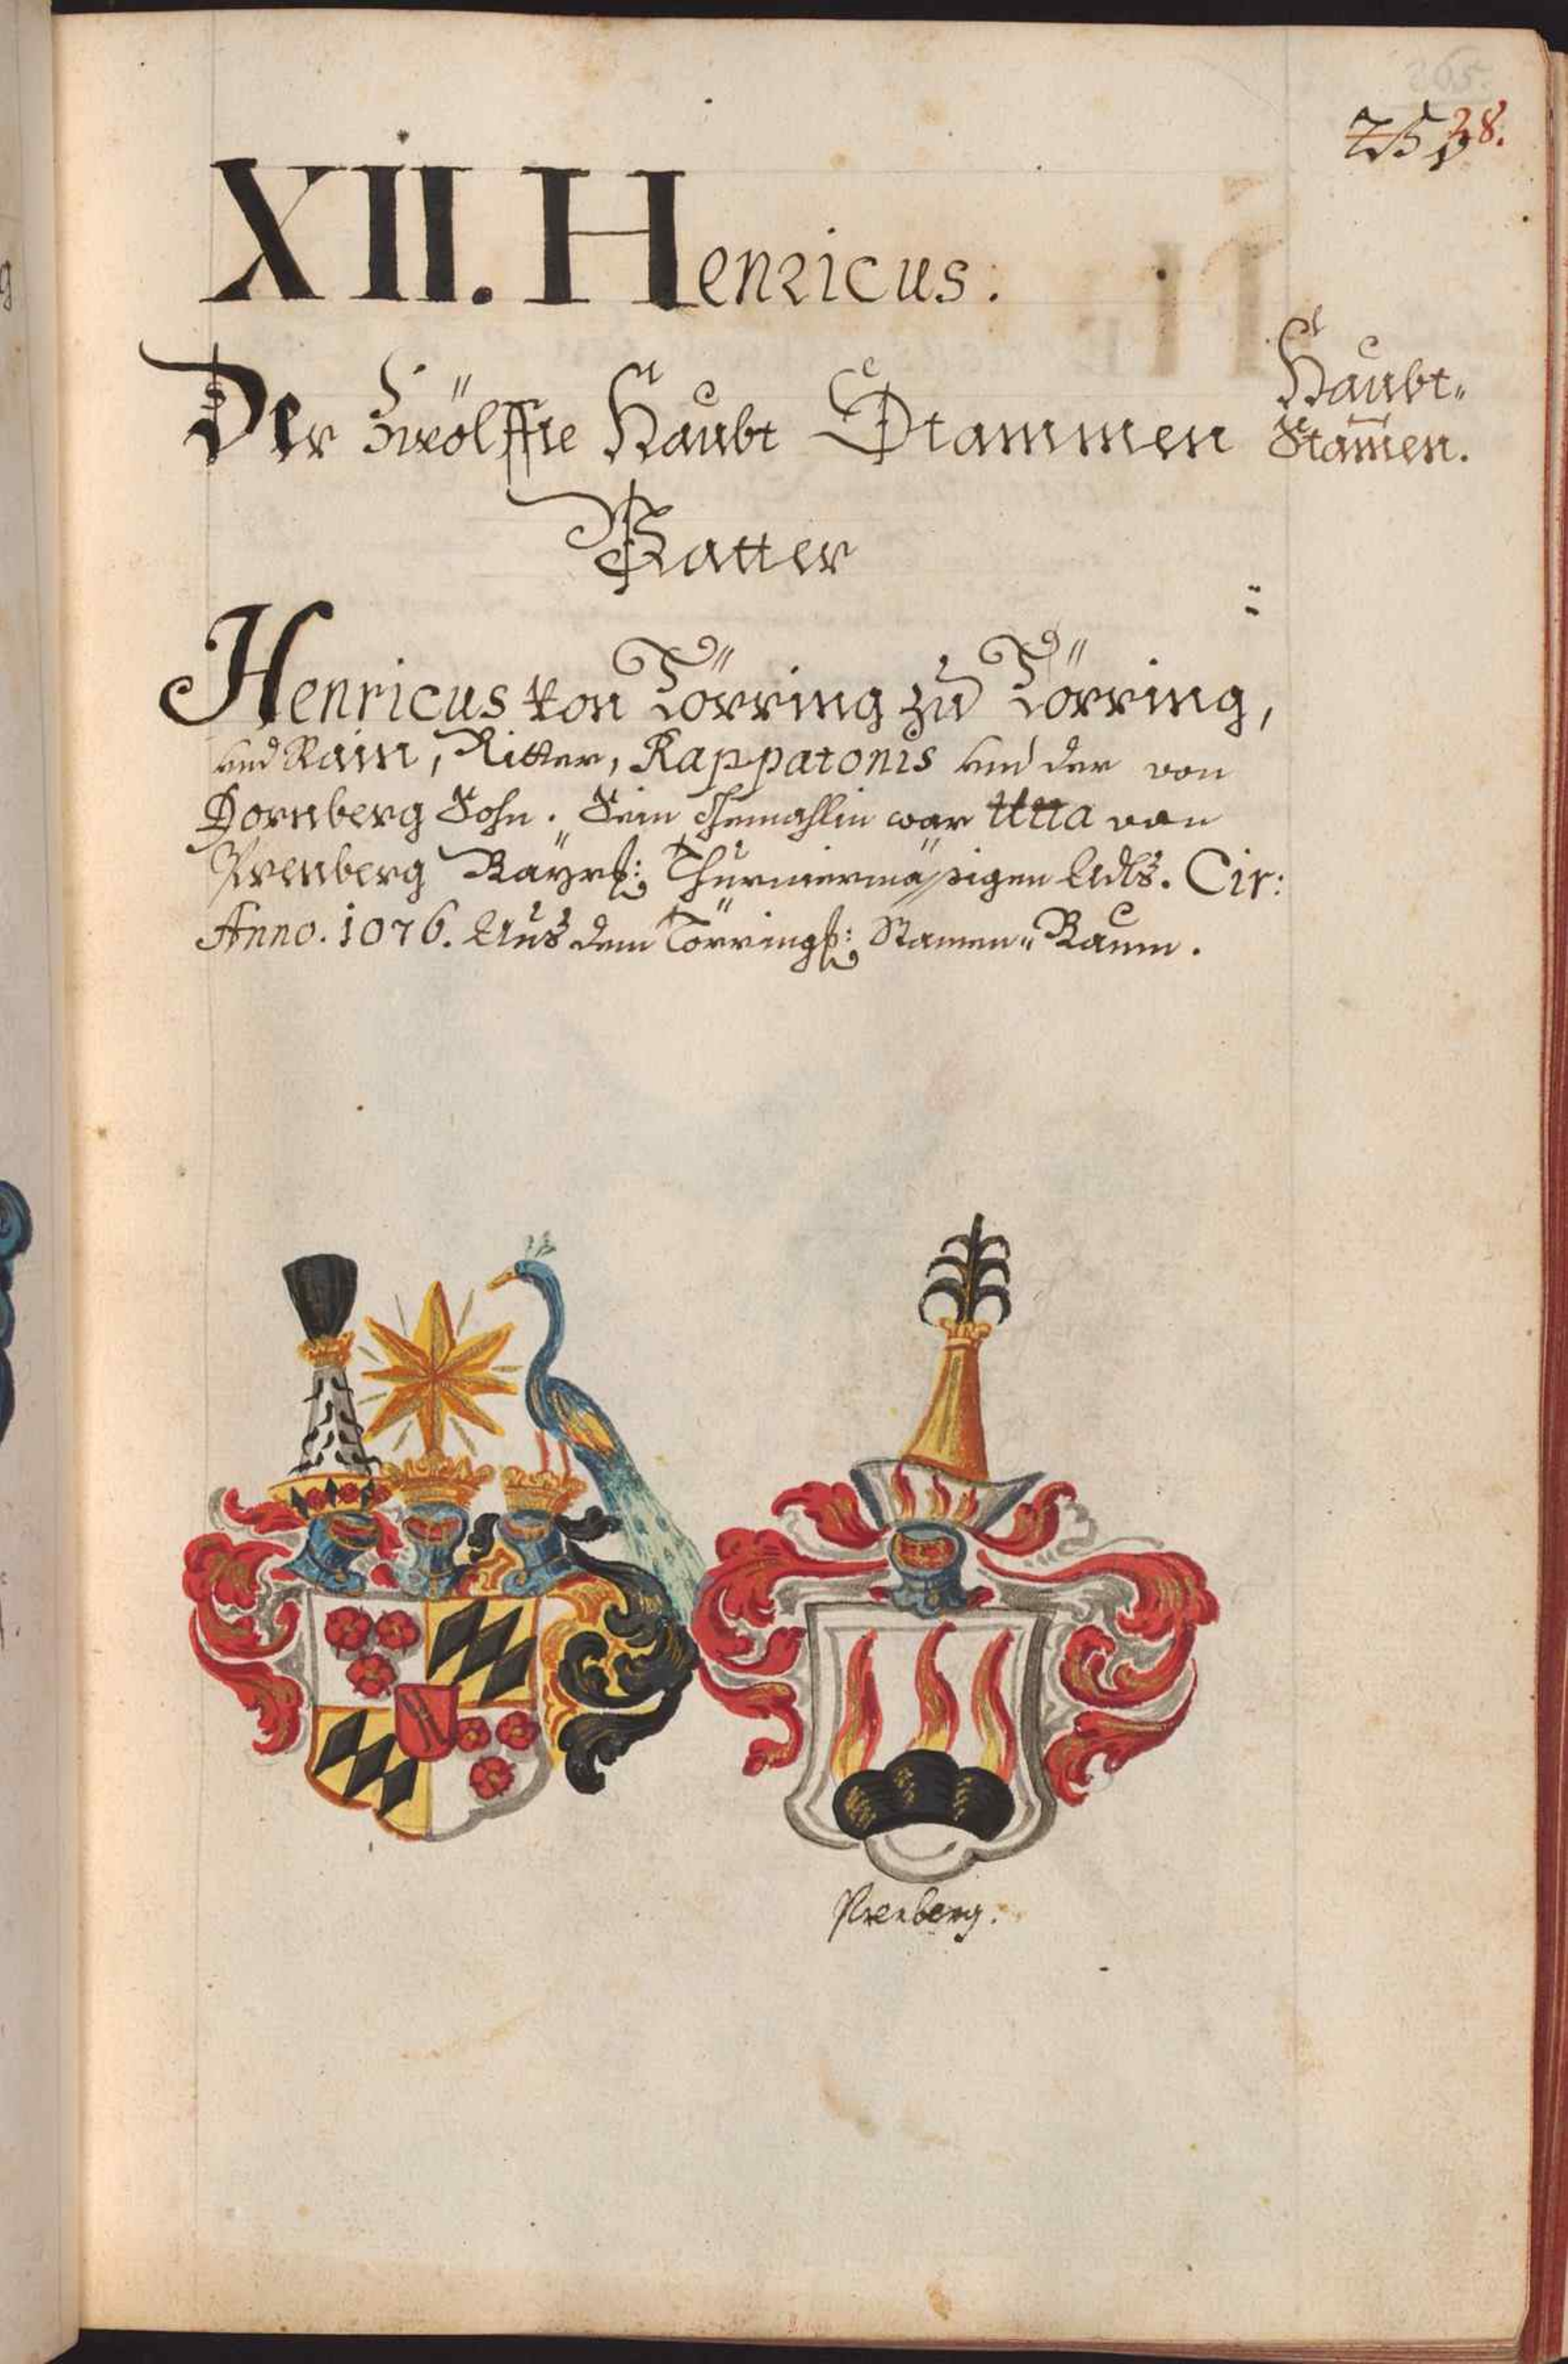 265.
238.
XII. Henricus:
Der Zwölffte Haubt Stammen
Vatter
Haubt-
Stam̄en.
Henricus von Törring zu Törring,
und Rain, Ritter, Rappatonis und der von
Dornberg Sohn. Sein Gemahlin war Utta von
Prenberg Bayrs: Thurniermäßigen Adls. Cir:
Anno. 1076. Aus dem Törrings: Stamen-Baum.
Prenberg.